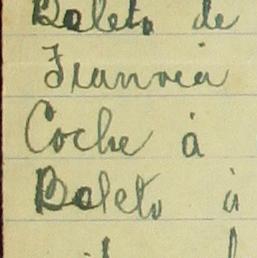 Boleto de
Tranvía
Coche à
Boleto à